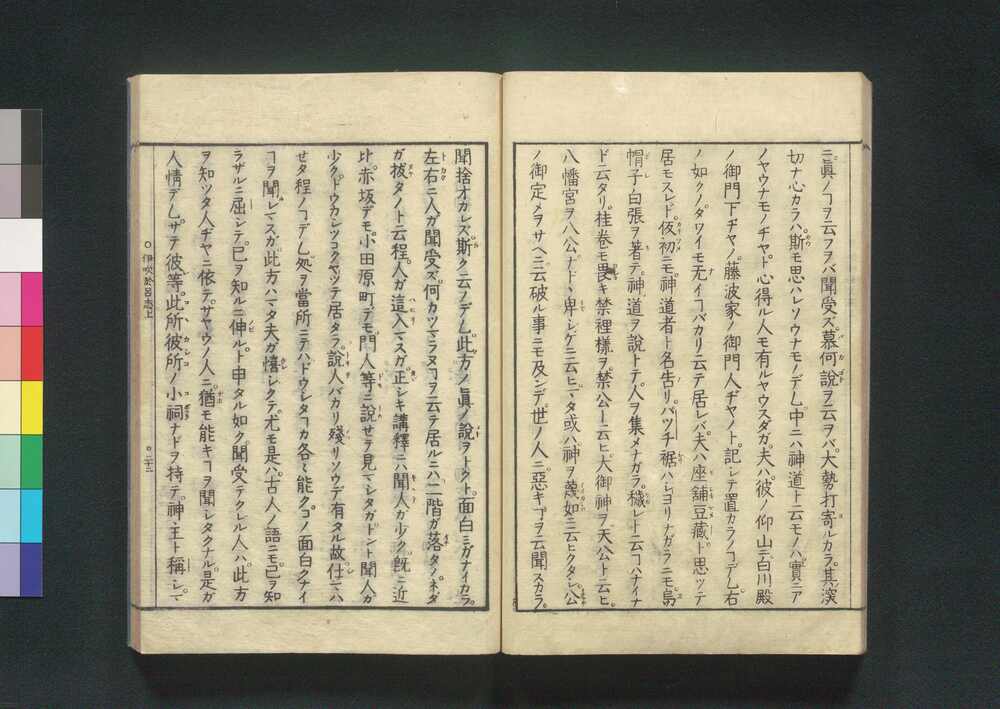 ニ眞ノヿヲ云フヲバ聞受ズ慕何説ヲ云ヲバ大勢打寄ルカラ其演
切ナ心カラハ斯モ思ハレソウナモノデ乚中ニハ神道ト云モノハ實ニア
ノヤウナモノヂヤト心得ル人モ有ルヤウスダガ夫ハ彼ノ仰山ニ白川殿
ノ御門下ヂヤノ藤波家ノ御門人ヂヤノト記シテ置カラノヿデ乚右
ノ如クノダワイモ无イヿバカリ云テ居レバ夫ハ座舗豆藏ト思ツテ
居モスレド仮初ニモ神道者ト名告リパツチ裾ハシヨリナガラニモ烏
帽子白張ヲ著テ神道ヲ説トテ人ヲ集メナガラ穢レト云ヿハナイナ
ド云タリ挂巻モ畏キ禁裡様ヲ禁公ト云ヒ大御神ヲ天公ト云ヒ
八幡宮ヲ八公ナドヽ卑シゲニ云ヒマタ或ハ神ヲ蔑如ニ云ヒクタシ公
ノ御定メヲサヘニ云破ル事ニモ及ンデ世ノ人ニ惡キヿヲ云聞スカラ
聞捨オカレズ斯ク云ノデ乚此方ノ眞ノ説ヲトクト面白ミガナイカラ
左右ニ人ガ聞受ズ何カツマラヌヿヲ云テ居ルニハ二階ガ落タノネダ
ガ拔タノト云程人ガ這入マスガ正シキ講釋ニハ聞人ガ少ク既ニ近
比赤坂デモ小田原町デモ門人等ニ説セヲ見マシタガドント聞人ガ
少クドウカシツコクヤツテ居タラ説人バカリ殘リソウデ有タル故仕マハ
せタ程ノヿデ乚処ヲ當所ニテハドウシタヿカ各々能クコノ面白クナイ
ヿヲ聞レマスガ此方ハマタ夫ガ憘シクテ尤モ是ハ古人ノ語ニモ已ヲ知
ラザルニ屈シテ已ヲ知ルニ伸ルト申タル如ク聞受テクレル人ハ此方
ヲ知ツタ人ヂヤニ依テサヤウノ人ニ猶モ能キヿヲ聞シタクナル是ガ
人情デ乚サテ彼等此所彼所ノ小祠ナドヲ持テ神主ト稱シマ
伊吹於呂志上
二十二